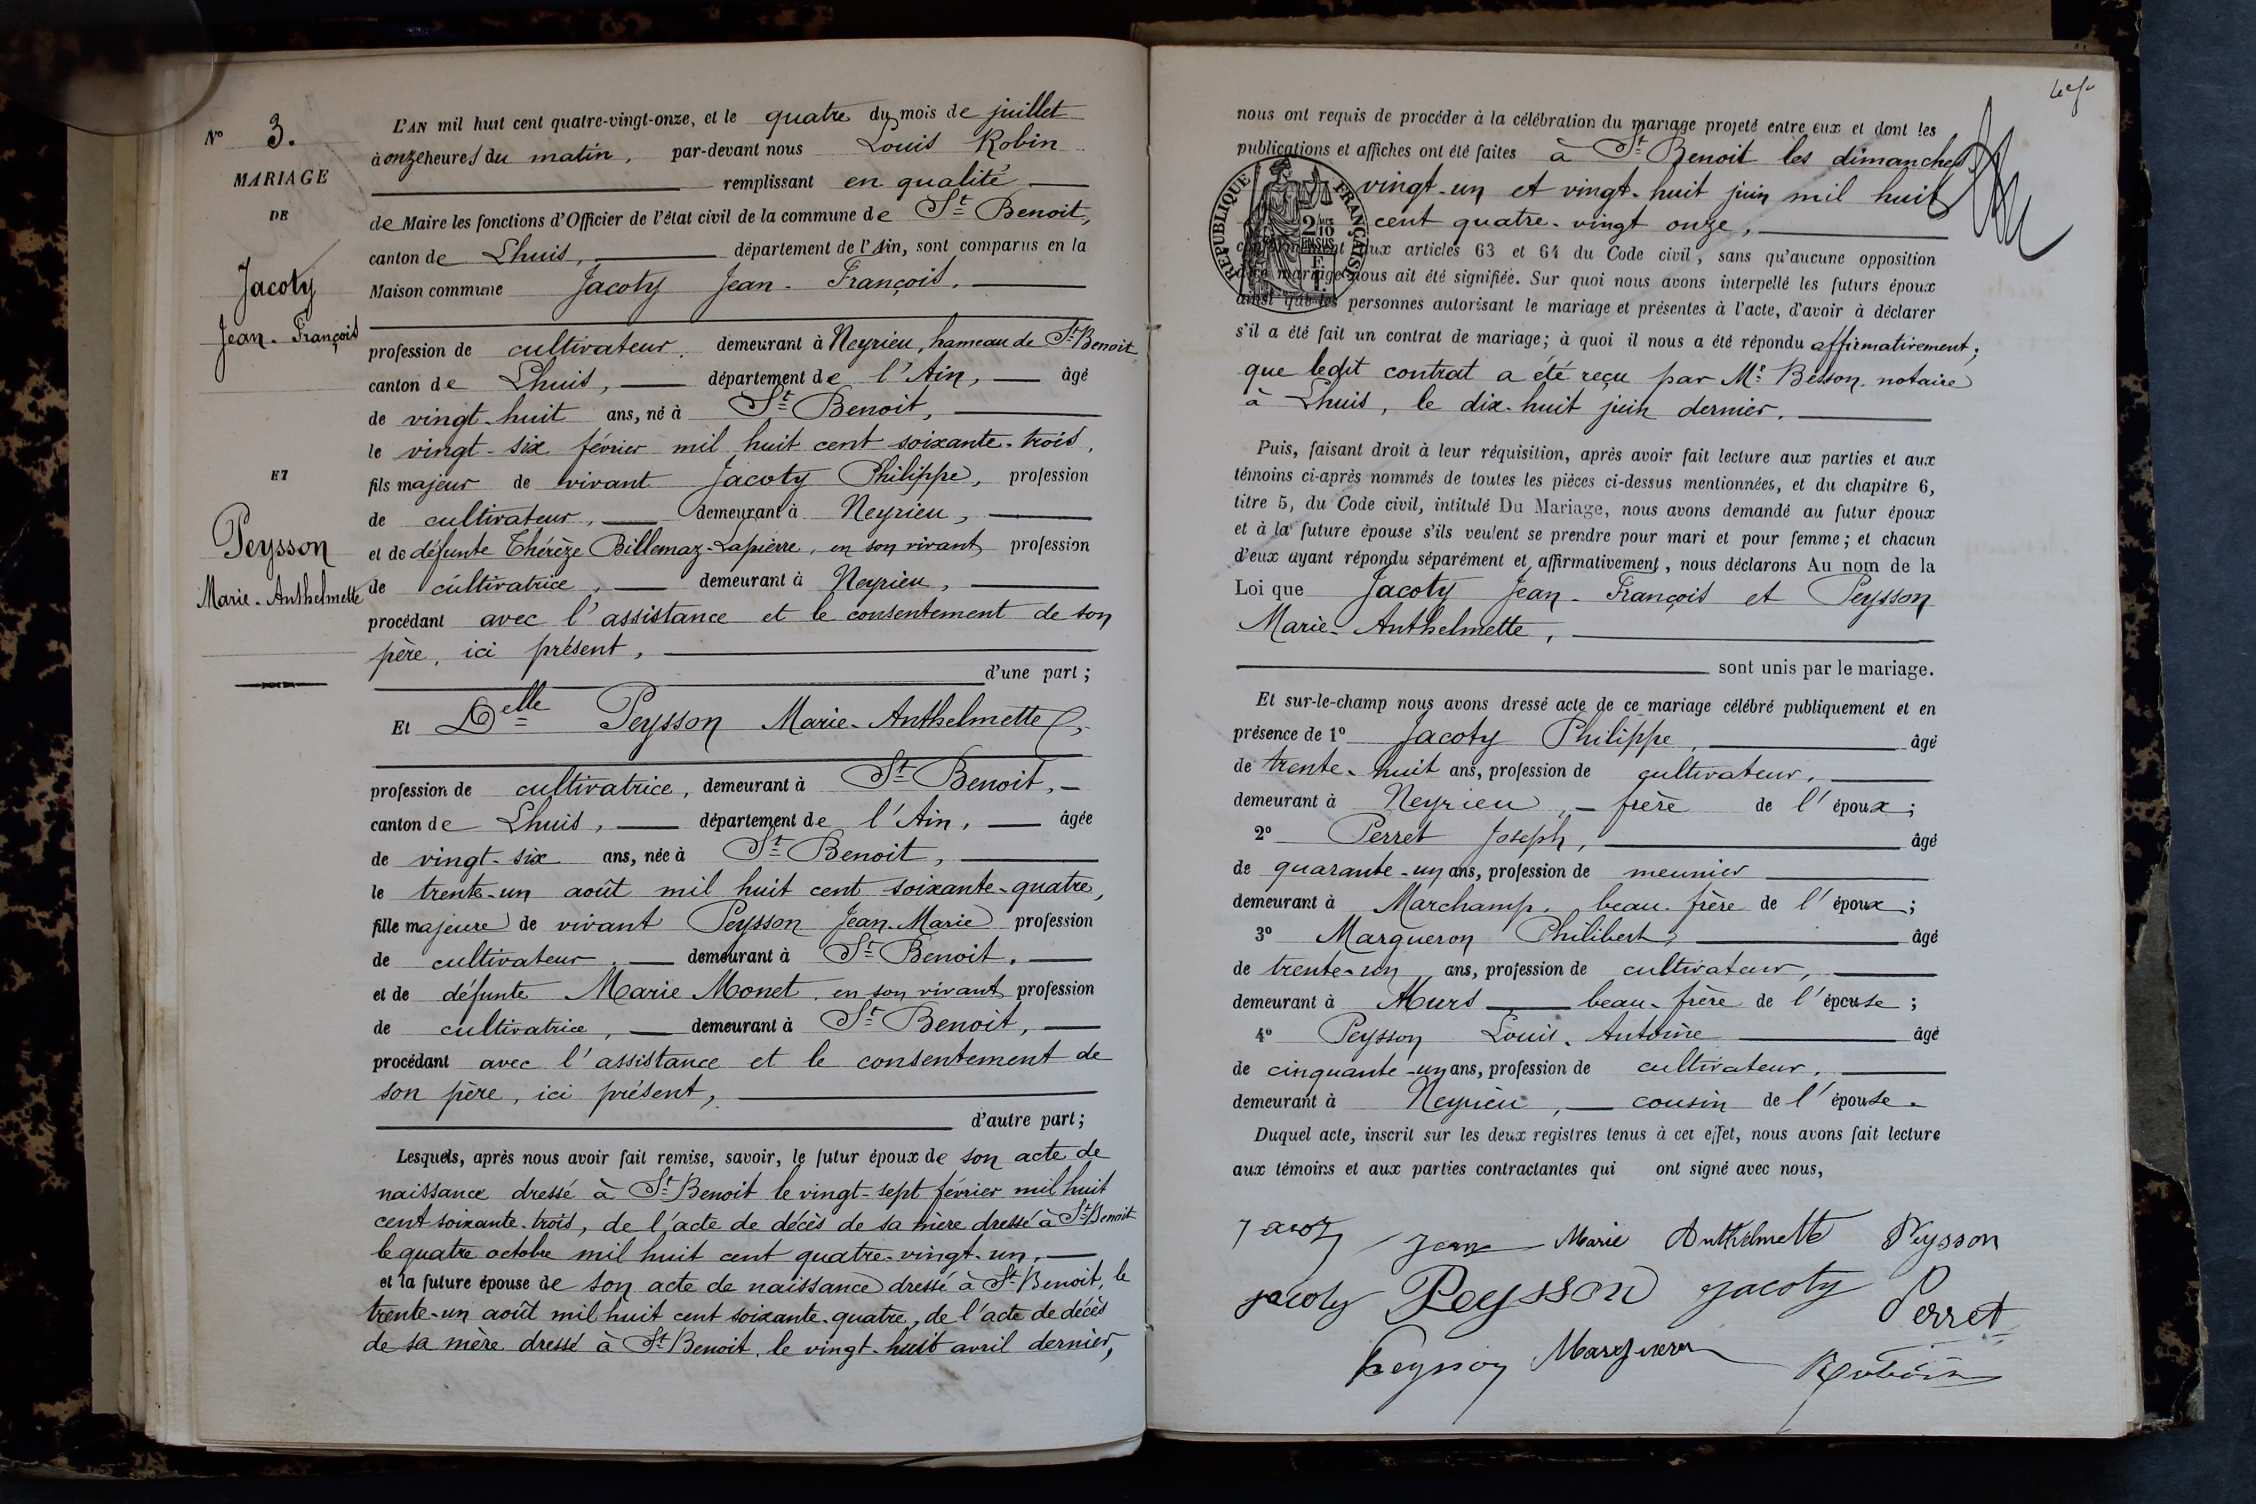 N° 3.
MARIAGE
DE
Jacoty
Jean-François
ET
Peysson
Marie-Anthelmette
L'AN mil huit cent quatre-vingt-onze, et le quatre du mois de juillet
à onze heures du matin, par-devant nous Louis Robin
remplissant en qualité
de Maire les fonctions d'Officier de l'état civil de la commune de St Benoit,
canton de Lhuis, département de l'Ain, sont comparus en la
Maison commune Jacoty Jean-François,
profession de cultivateur, demeurant à Neyrieu, hameau de St Benoit
canton de Lhuis, département de l'Ain, âgé
de vingt-huit ans, né à St Benoit,
le vingt-six février mil huit cent soixante-trois,
fils majeur de vivant Jacoty Philippe, profession
de cultivateur, demeurant à Neyrieu,
et de défunte Thérèze Billemaz-Lapierre, en son vivant profession
de cultivatrice, demeurant à Neyrieu,
procédant avec l'assistance et le consentement de son
père, ici présent,
d'une part;
Et Delle Peysson Marie-Anthelmette,
profession de cultivatrice, demeurant à St Benoit,
canton de Lhuis, département de l'Ain, âgée
de vingt-six ans, née à St Benoit,
le trente-un août mil huit cent soixante-quatre,
fille majeure de vivant Peysson Jean-Marie profession
de cultivateur, demeurant à St Benoit,
et de défunte Marie Monet, en son vivant profession
de cultivatrice, demeurant à St Benoit,
procédant avec l'assistance et le consentement de
son père, ici présent,
d'autre part;
Lesquels, après nous avoir fait remise, savoir, le futur époux de son acte de
naissance dressé à St Benoit le vingt-sept février mil huit
cent soixante-trois, de l'acte de décès de sa mère dressé à St Benoit
le quatre octobre mil huit cent quatre-vingt-un,
et la future épouse de son acte de naissance dressé à St Benoit, le
trente-un août mil huit cent soixante-quatre, de l'acte de décès
de sa mère dressé à St Benoit, le vingt-huit avril dernier,
nous ont requis de procéder à la célébration du mariage projeté entre eux et dont les
publications et affiches ont été faites à St Benoit les dimanches
vingt-un et vingt-huit juin mil huit
cent quatre-vingt onze,
RÉPUBLIQUE FRANÇAISE
2/10 EN SUS
aux articles 63 et 64 du Code civil, sans qu'aucune opposition
mariage nous ait été signifiée. Sur quoi nous avons interpellé les futurs époux
ainsi que les personnes autorisant le mariage et présentes à l'acte, d'avoir à déclarer
s'il a été fait un contrat de mariage; à quoi il nous a été répondu affirmativement;
que ledit contrat a été reçu par Me Besson, notaire
à Lhuis, le dix-huit juin dernier.
Puis, faisant droit à leur réquisition, après avoir fait lecture aux parties et aux
témoins ci-après nommés de toutes les pièces ci-dessus mentionnées, et du chapitre 6,
titre 5, du Code civil, intitulé Du Mariage, nous avons demandé au futur époux
et à la future épouse s'ils veulent se prendre pour mari et pour femme; et chacun
d'eux ayant répondu séparément et affirmativement, nous déclarons Au nom de la
Loi que Jacoty Jean-François et Peysson
Marie-Anthelmette,
sont unis par le mariage.
Et sur-le-champ nous avons dressé acte de ce mariage célébré publiquement et en
présence de 1° Jacoty Philippe, âgé
de trente-huit ans, profession de cultivateur,
demeurant à Neyrieu, frère de l'époux;
2° Perret Joseph, âgé
de quarante-un ans, profession de meunier
demeurant à Marchamp, beau-frère de l'époux;
3° Margueron Philibert, âgé
de trente-un ans, profession de cultivateur,
demeurant à Murs beau-frère de l'épouse;
4° Peysson Louis-Antoine âgé
de cinquante-un ans, profession de cultivateur,
demeurant à Neyrieu, cousin de l'épouse.
Duquel acte, inscrit sur les deux registres tenus à cet effet, nous avons fait lecture
aux témoins et aux parties contractantes qui ont signé avec nous,
Jacoty Jean Marie Anthelmette Peysson
jacoty Peysson jacoty Perret
Peysson Margueron Robin